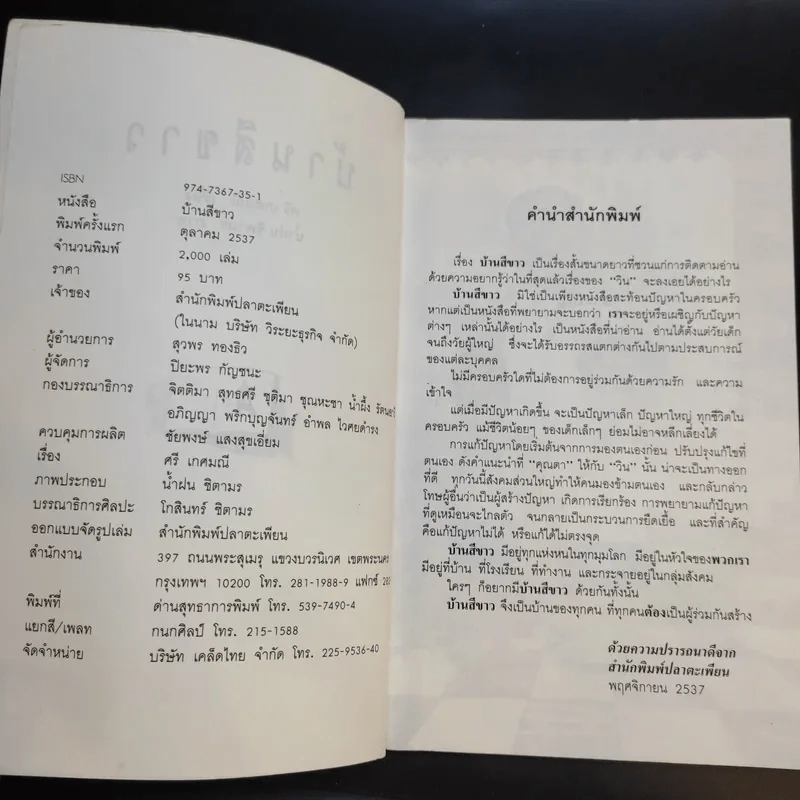 ISBN 974-7367-35-1
หนังสือ บ้านสีขาว
พิมพ์ครั้งแรก ตุลาคม 2537
จำนวนพิมพ์ 2,000 เล่ม
ราคา 95 บาท
เจ้าของ สำนักพิมพ์ปลาตะเพียน
(ในนาม บริษัท วิระยะธุรกิจ จำกัด)
ผู้อำนวยการ สุวพร ทองธิว
ผู้จัดการ ปิยะพร กัญชนะ
กองบรรณาธิการ จิตติมา สุทธศรี ชุติมา ชุณหะชา น้ำผึ้ง
อภิญญา พริกบุญจันทร์ อำพล ไวศยดำรง
ควบคุมการผลิต ชัยพงษ์ แสงสุขเอี่ยม
เรื่อง ศรี เกศมณี
ภาพประกอบ น้ำฝน ชิตามร
บรรณาธิการศิลปะ โกสินทร์ ชิตามร
ออกแบบจัดรูปเล่ม สำนักพิมพ์ปลาตะเพียน
สำนักงาน 397 ถนนพระสุเมรุ แขวงบวรนิเวศ เขตพระนคร
กรุงเทพฯ 10200 โทร. 281-1988-9 แฟกซ์
พิมพ์ที่ ด่านสุทธาการพิมพ์ โทร. 539-7490-4
แยกสี/เพลท กนกศิลป์ โทร. 215-1588
จัดจำหน่าย บริษัท เคล็ดไทย จำกัด โทร. 225-9536-40
คำนำสำนักพิมพ์
เรื่อง บ้านสีขาว เป็นเรื่องสั้นขนาดยาวที่ชวนแก่การติดตามอ่าน
ด้วยความอยากรู้ว่าในที่สุดแล้วเรื่องของ "วิน" จะลงเอยได้อย่างไร
บ้านสีขาว มิใช่เป็นเพียงหนังสือสะท้อนปัญหาในครอบครัว
หากแต่เป็นหนังสือที่พยายามจะบอกว่า เราจะอยู่หรือเผชิญกับปัญหา
ต่างๆ เหล่านั้นได้อย่างไร เป็นหนังสือที่น่าอ่าน อ่านได้ตั้งแต่วัยเด็ก
จนถึงวัยผู้ใหญ่ ซึ่งจะได้รับอรรถรสแตกต่างกันไปตามประสบการณ์
ของแต่ละบุคคล
ไม่มีครอบครัวใดที่ไม่ต้องการอยู่ร่วมกันด้วยความรัก และความ
เข้าใจ
แต่เมื่อมีปัญหาเกิดขึ้น จะเป็นปัญหาเล็ก ปัญหาใหญ่ ทุกชีวิตใน
ครอบครัว แม้ชีวิตน้อยๆ ของเด็กเล็กๆ ย่อมไม่อาจหลีกเลี่ยงได้
การแก้ปัญหาโดยเริ่มต้นจากการมองตนเองก่อน ปรับปรุงแก้ไขที่
ตนเอง ดังคำแนะนำที่ "คุณตา" ให้กับ "วิน" นั้น น่าจะเป็นทางออก
ที่ดี ทุกวันนี้สังคมส่วนใหญ่ทำให้คนมองข้ามตนเอง และกลับกล่าว
โทษผู้อื่นว่าเป็นผู้สร้างปัญหา เกิดการเรียกร้อง การพยายามแก้ปัญหา
ที่ดูเหมือนจะไกลตัว จนกลายเป็นกระบวนการยืดเยื้อ และที่สำคัญ
คือแก้ปัญหาไม่ได้ หรือแก้ได้ไม่ตรงจุด
บ้านสีขาว มีอยู่ทุกแห่งหนในทุกมุมโลก มีอยู่ในหัวใจของพวกเรา
มีอยู่ที่บ้าน ที่โรงเรียน ที่ทำงาน และกระจายอยู่ในกลุ่มสังคม
ใครๆ ก็อยากมีบ้านสีขาว ด้วยกันทั้งนั้น
บ้านสีขาว จึงเป็นบ้านของทุกคน ที่ทุกคนต้องเป็นผู้ร่วมกันสร้าง
ด้วยความปรารถนาดีจาก
สำนักพิมพ์ปลาตะเพียน
พฤศจิกายน 2537